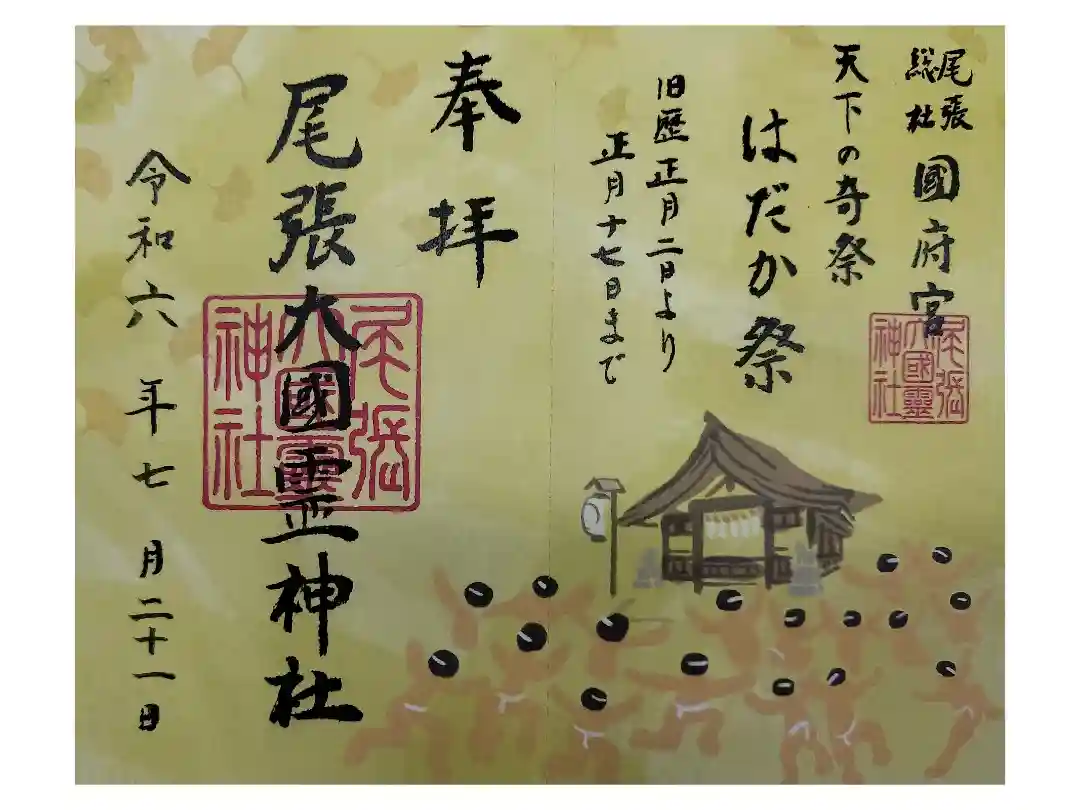 尾張
総社
國府宮
天下の奇祭
はだか祭
旧歴正月二日より
正月十七日まで
尾張
大國靈
神社
奉拝
尾張大國霊神社
尾張
大國靈
神社
令和六年七月二十一日